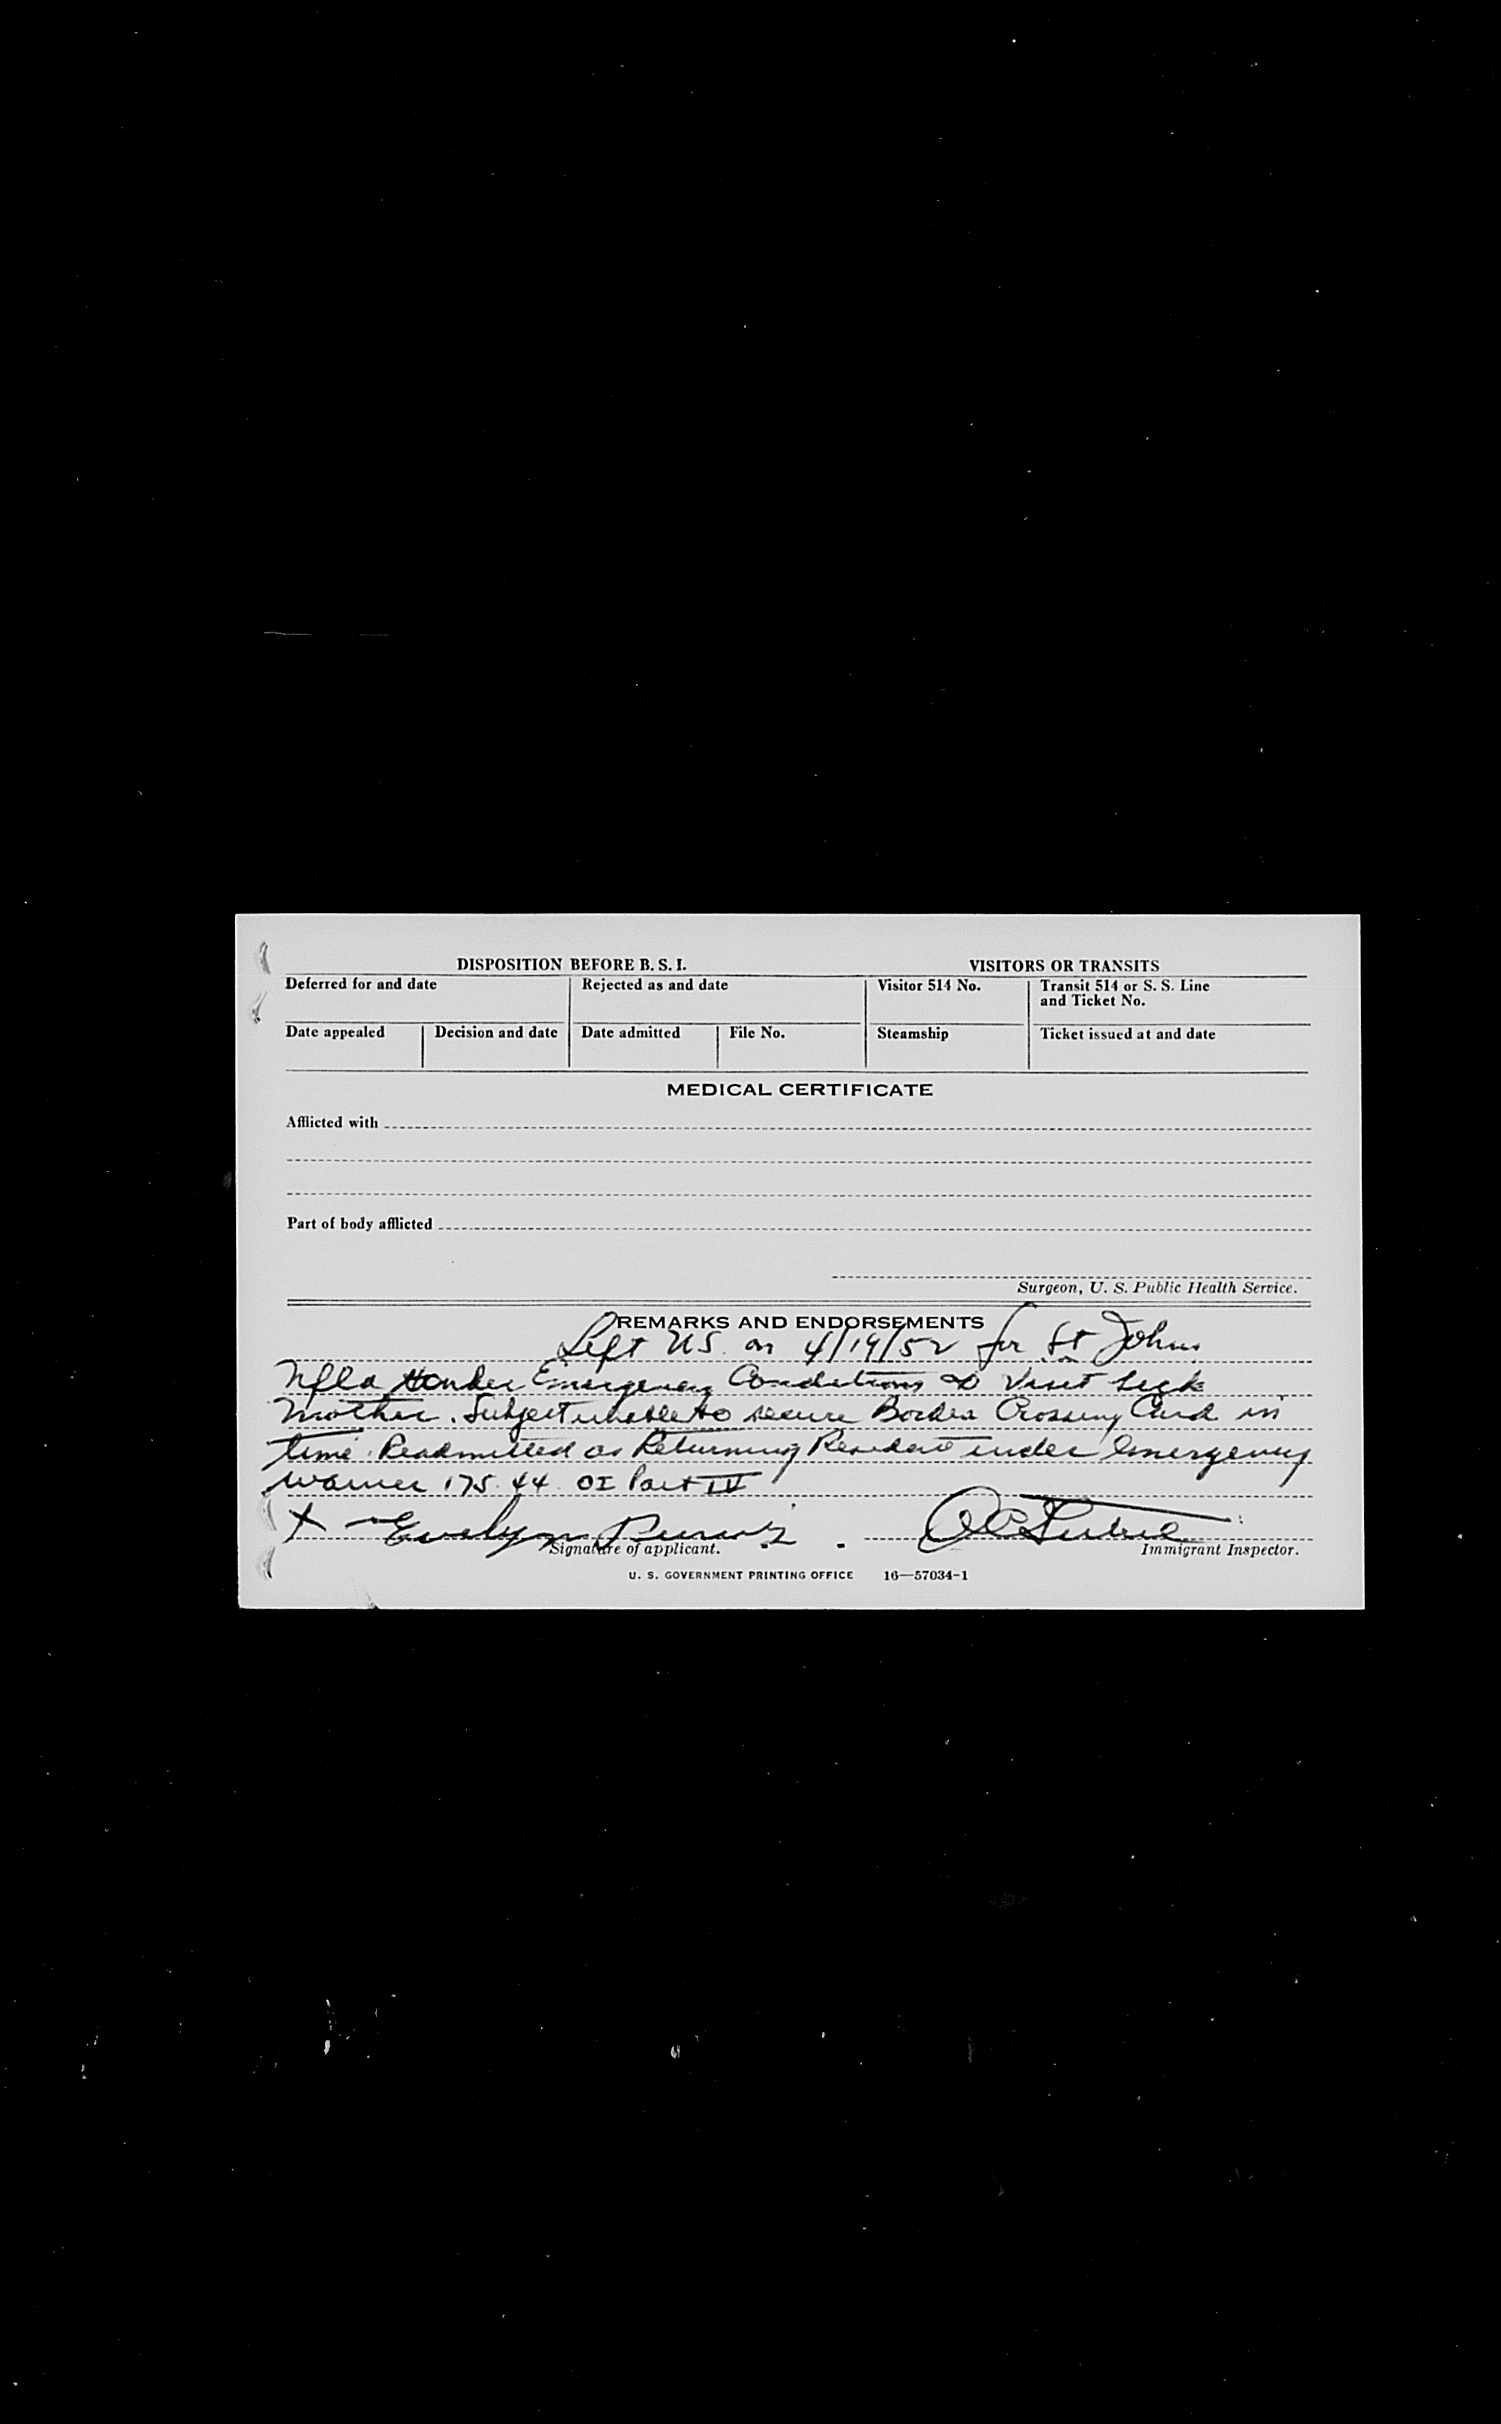 DISPOSITION BEFORE B. S. I.
VISITORS OR TRANSITS
Deferred for and date
Rejected as and date
Visitor 514 No.
Transit 514 or S. S. Line
and Ticket No.
Date appealed
Decision and date
Date admitted
File No.
Steamship
Ticket issued at and date
MEDICAL CERTIFICATE
Afflicted with
Part of body afflicted
Surgeon, U. S. Public Health Service.
REMARKS AND ENDORSEMENTS
Left US. on 4/19/52 for St Johns
Nfld under Emergency Conditions to Visit Sick
Mother. Subject unable to secure Border Crossing Card in
time. Readmitted as Returning Resident under emergency
waiver 175.44 OI Part IV
X Evelyn
Signature of applicant.
Immigrant Inspector.
U. S. GOVERNMENT PRINTING OFFICE 16—57034-1